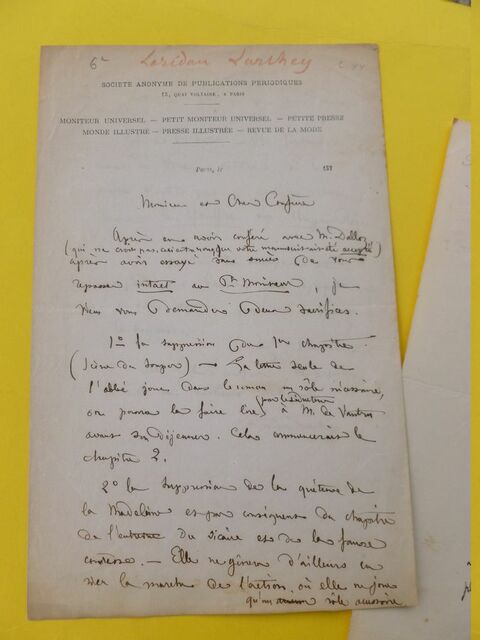 6e
Loredan Larchey
SOCIÉTÉ ANONYME DE PUBLICATIONS PÉRIODIQUES
13, QUAI VOLTAIRE, A PARIS
MONITEUR UNIVERSEL — PETIT MONITEUR UNIVERSEL — PETITE PRESSE
MONDE ILLUSTRÉ — PRESSE ILLUSTRÉE — REVUE DE LA MODE
Paris, le 187
Monsieur et Cher Confrère
Après en avoir conféré avec M. Dalloz
(qui ne croit pas, votre manuscrit ait été accepté)
après avoir essayé sans succès de vous
repasser intact au Pt Moniteur, je
viens vous demander deux sacrifices.
1º la suppression du 1er chapitre
(scène du souper) — La lettre seule de
l'abbé joue dans le roman un rôle nécessaire,
on pourra la faire lire (par le ) à M. de
avant son déjeuner. Cela commencerait le
chapitre 2.
2º la suppression de la quêteuse de
la Madeleine et par conséquent du chapitre
de l'entrevue du vicaire et de la fausse
comtesse. — Elle ne gênera d'ailleurs en
rien la marche de l'action, où elle ne joue
qu'un rôle accessoire